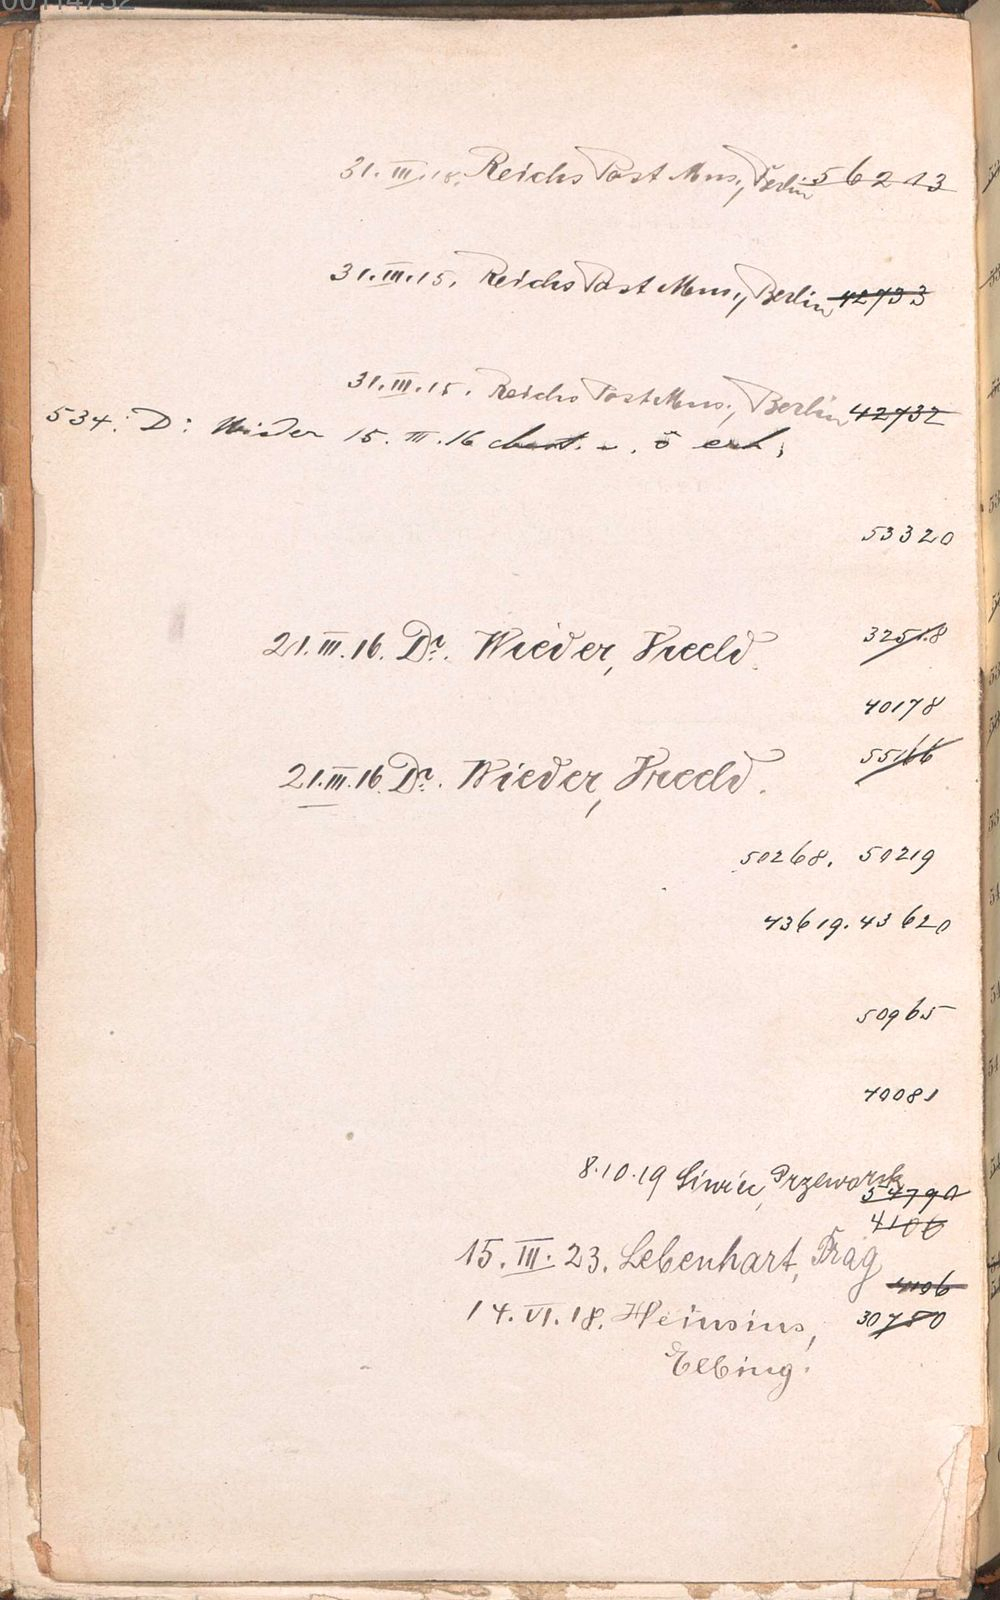 00114732
31. III. 18. Reichs Post Mus., Berlin 56213
31. III. 15. Reichs Post Mus., Berlin 42733
31. III. 15. Reichs Post Mus., Berlin 42732
534: D: Wieder 15. III. 16
53320
21. III. 16. Dr. Wieder, 32518
40178
55166
21. III. 16. Dr. Wieder,
50268. 50219
43619. 43620
50965
40081
8.10.19 Siwiec, Przeworsk
54790
4106
15. III. 23. Lebenhart, Prag
4106
14. VI. 18. Heinsius, 30780
Elbing.